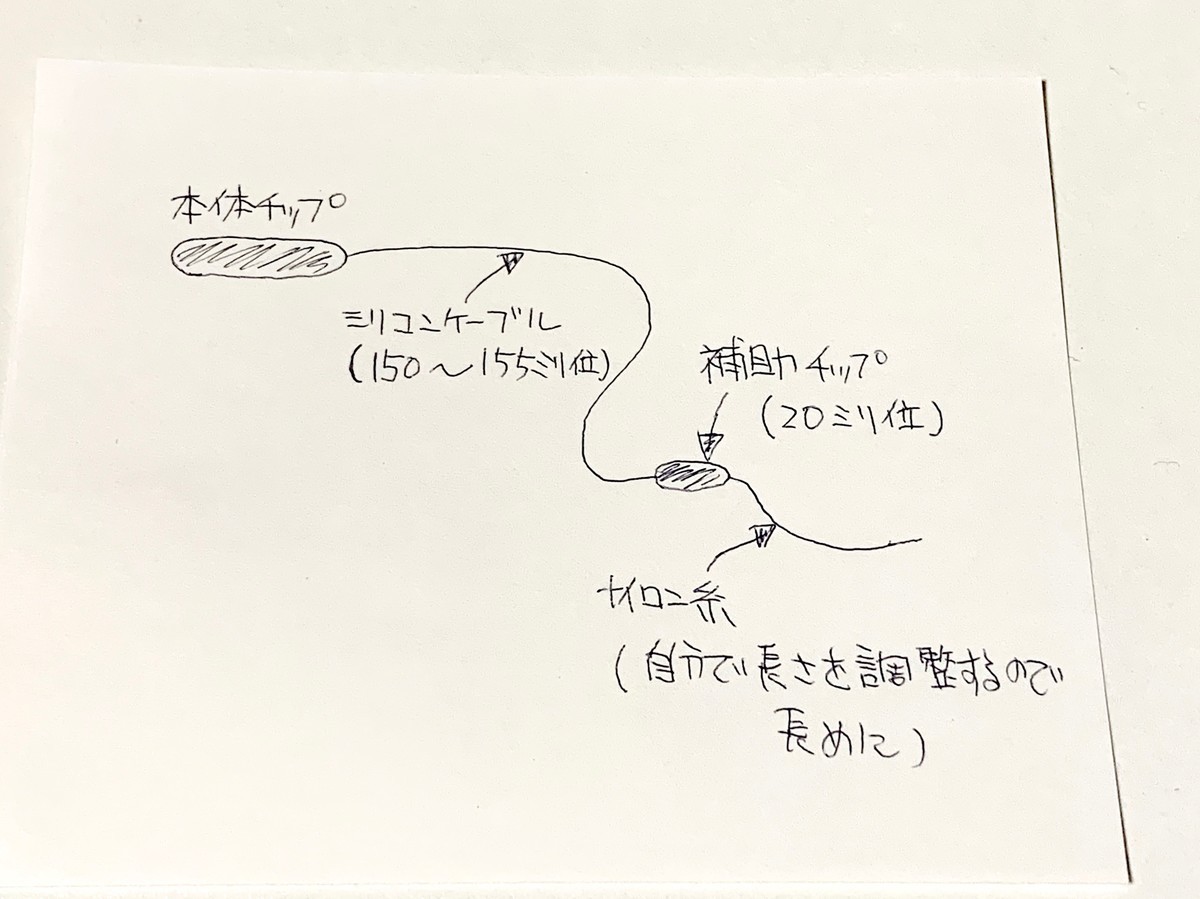 本体チップ
シリコンケーブル
(150～155ミリ位)
補助チップ
(20ミリ位)
ナイロン糸
(自分で長さを調整するので
長めに)